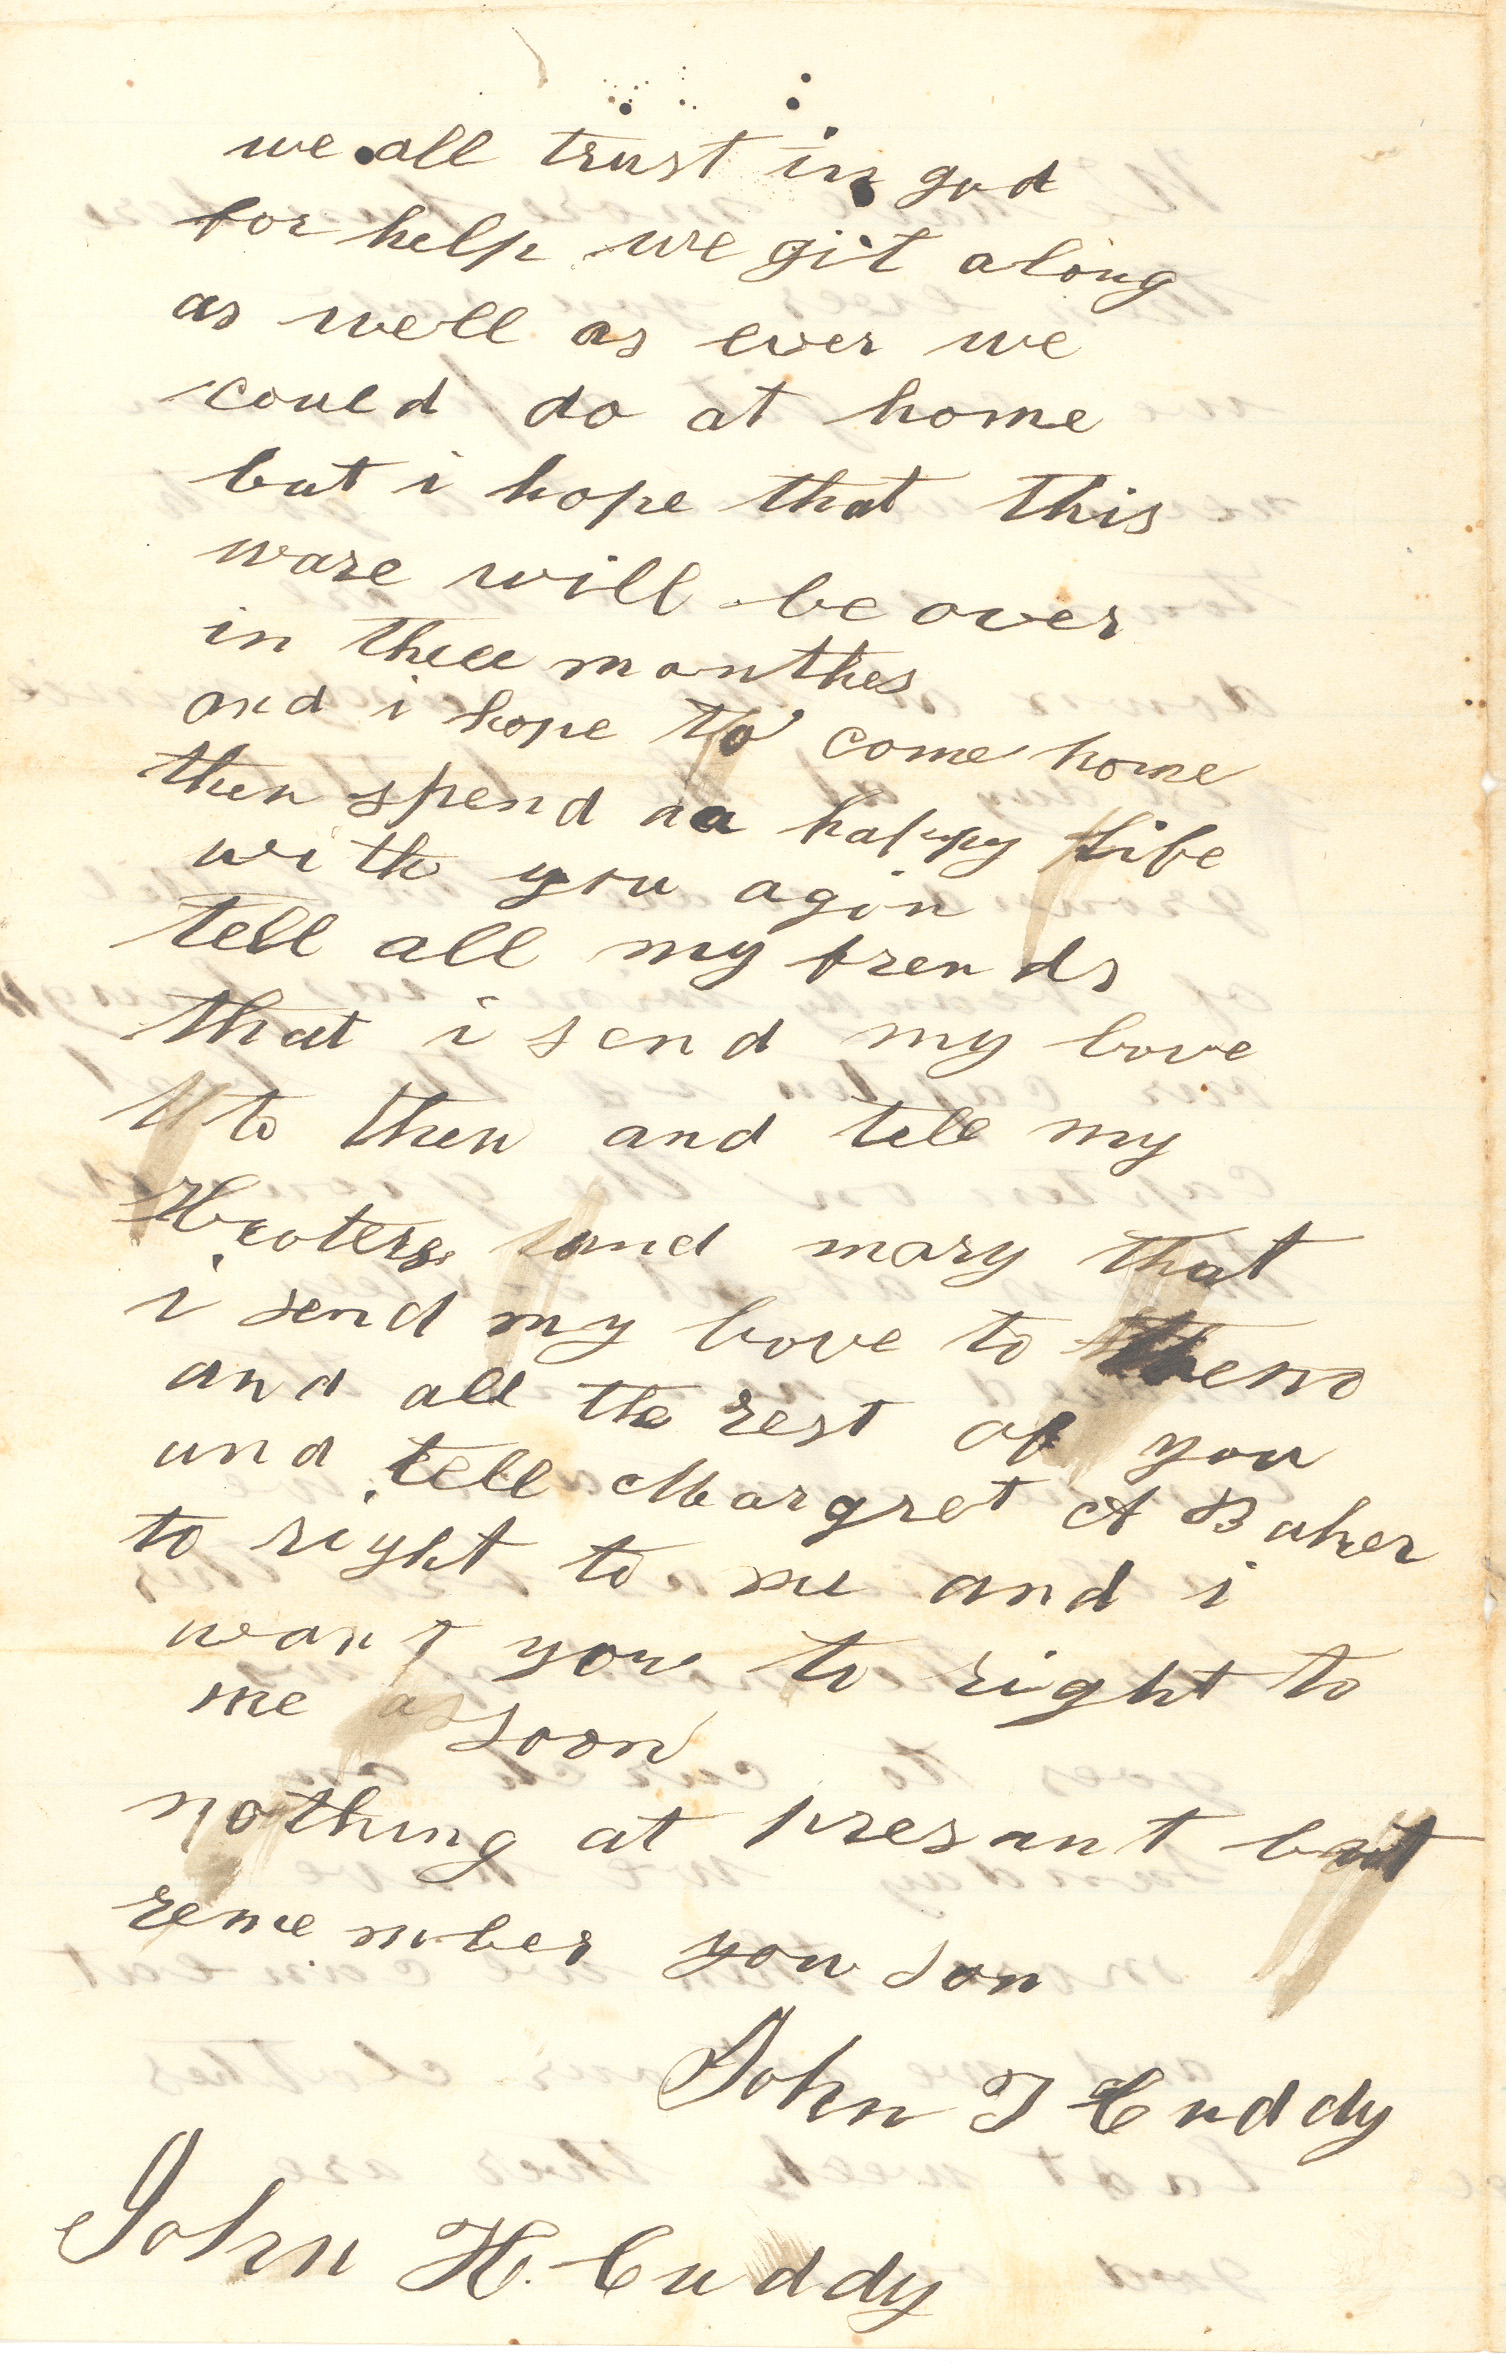 we all trust in god
for help we git along
as well as ever we
could do at home
but i hope that this
ware will be over
in three monthes
and i hope to come home
then spend a a happy life
with you agin
tell all my frends
that i send my love
to then and tell my
and mary that
i send my love to them
and all the rest of you
and tell Margret A Baker
to right to me and i
want you to right to
me as soon
nothing at presant but
remember you son
John T Cuddy
John H. Cuddy